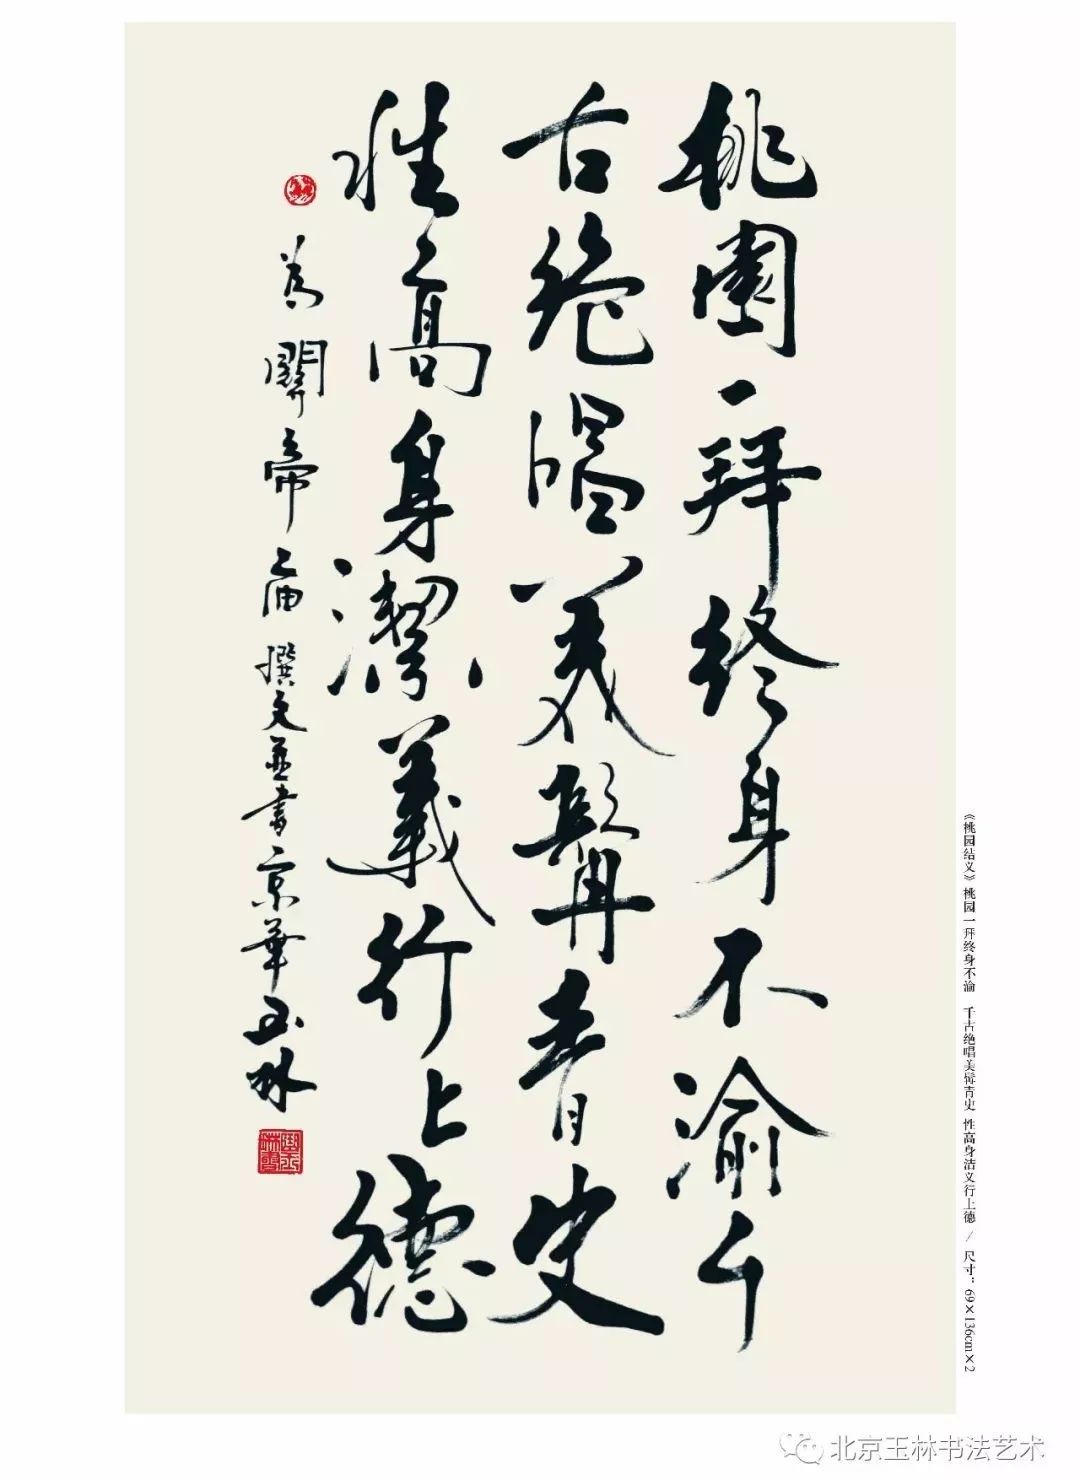 桃園一拜終身不渝千
古絶唱美髯青史
性高身潔義行上德
為關帝庙撰文並書京華玉林
《桃园结义》桃园一拜终身不渝 千古绝唱美髯青史 性高身洁义行上德 / 尺寸：69×136cm×2
北京玉林书法艺术